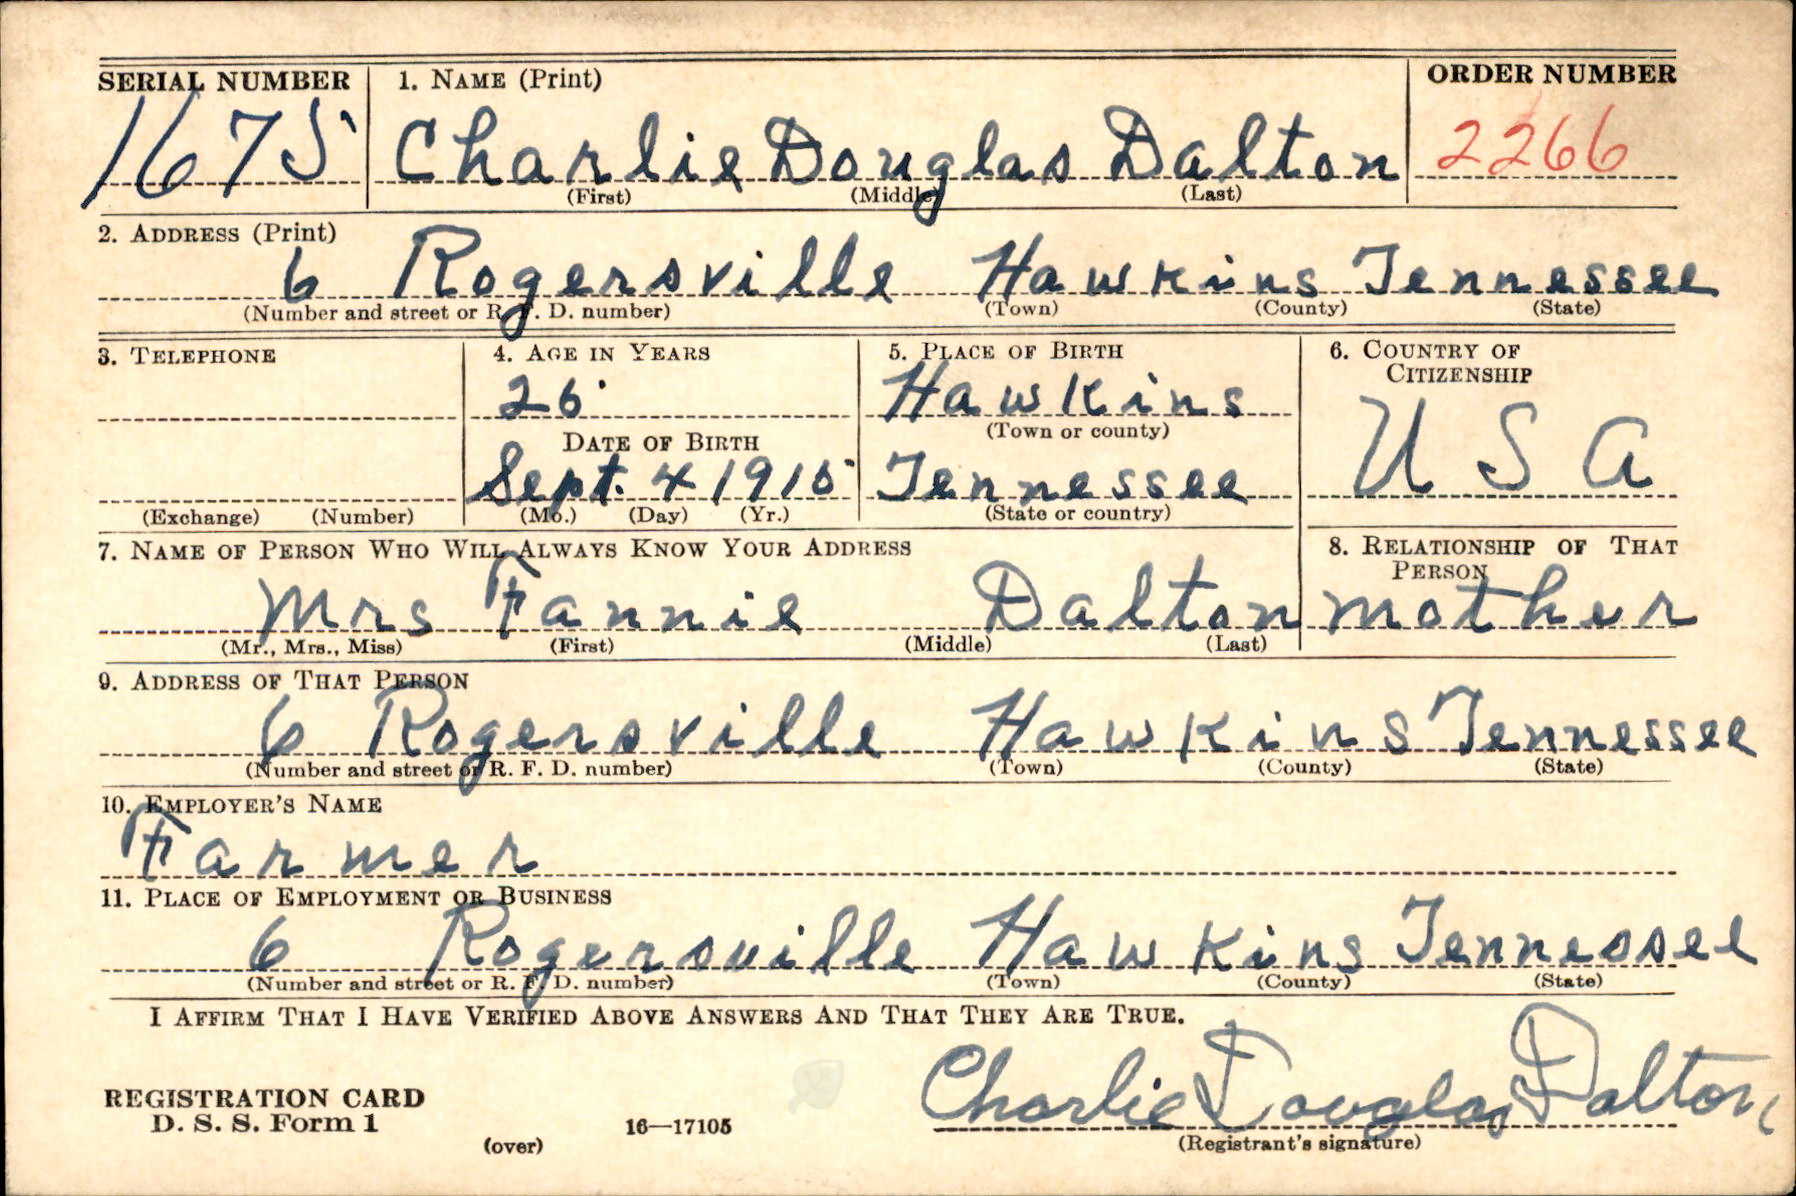 SERIAL NUMBER 1. NAME (Print) ORDER NUMBER
1675 Charlie Douglas Dalton 2266
(First) (Middle) (Last)
2. ADDRESS (Print)
6 Rogersville Hawkins Tennessee
(Number and street or R. F. D. number) (Town) (County) (State)
3. TELEPHONE 4. AGE IN YEARS 5. PLACE OF BIRTH 6. COUNTRY OF
CITIZENSHIP
26 Hawkins
(Town or county)
DATE OF BIRTH
Sept. 4 1915 Tennessee U S A
(Exchange) (Number) (Mo.) (Day) (Yr.) (State or country)
7. NAME OF PERSON WHO WILL ALWAYS KNOW YOUR ADDRESS 8. RELATIONSHIP OF THAT
PERSON
Mrs Fannie Dalton mother
(Mr., Mrs., Miss) (First) (Middle) (Last)
9. ADDRESS OF THAT PERSON
6 Rogersville Hawkins Tennessee
(Number and street or R. F. D. number) (Town) (County) (State)
10. EMPLOYER'S NAME
Farmer
11. PLACE OF EMPLOYMENT OR BUSINESS
6 Rogersville Hawkins Tennessee
(Number and street or R. F. D. number) (Town) (County) (State)
I AFFIRM THAT I HAVE VERIFIED ABOVE ANSWERS AND THAT THEY ARE TRUE.
Charlie Douglas Dalton
REGISTRATION CARD
D. S. S. Form 1 16—17105
(over) (Registrant's signature)